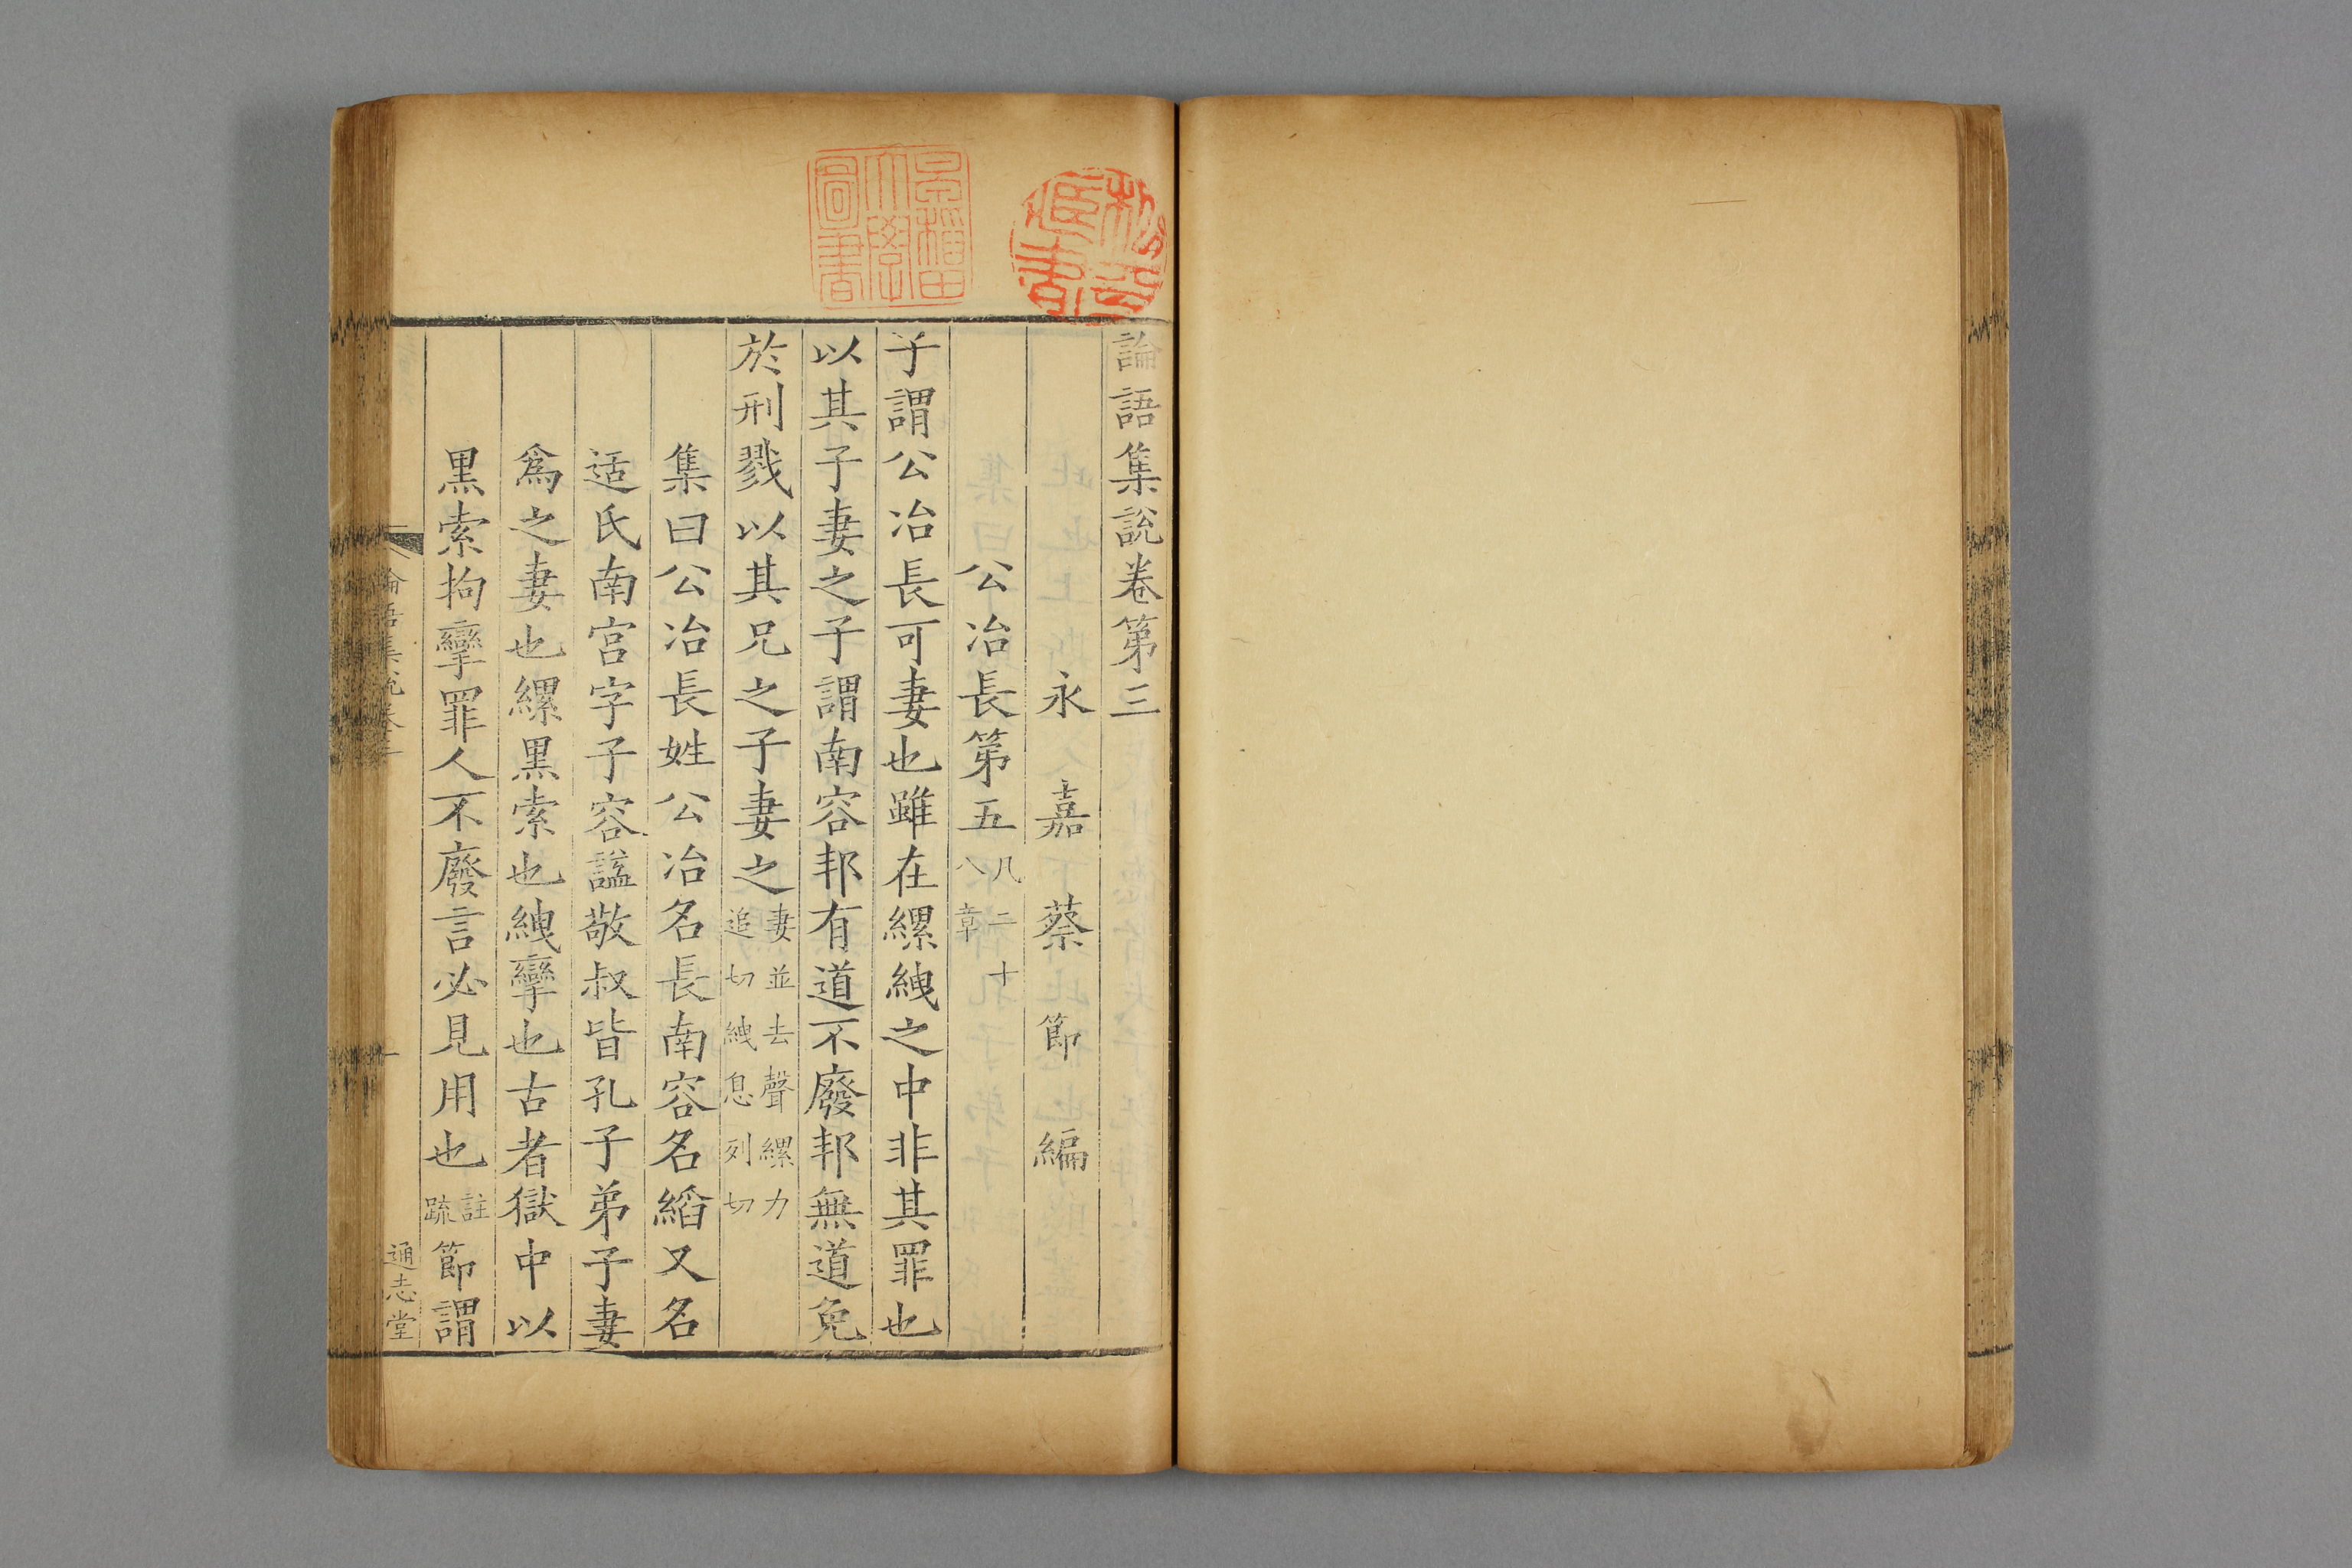 論語集說卷第三
永嘉蔡節編
公冶長第五凡二十八章
子謂公冶長可妻也雖在縲絏之中非其罪也
以其子妻之子謂南容邦有道不廢邦無道免
於刑戮以其兄之子妻之妻並去聲縲力追切絏息列切
集曰公冶長姓公冶名長南容名縚又名
适氏南宮字子容諡敬叔皆孔子弟子妻
爲之妻也縲黒索也絏攣也古者獄中以
黒索拘攣罪人不廢言必見用也註疏節謂
論語集說卷三
一
通志堂
早稻田大學圖書